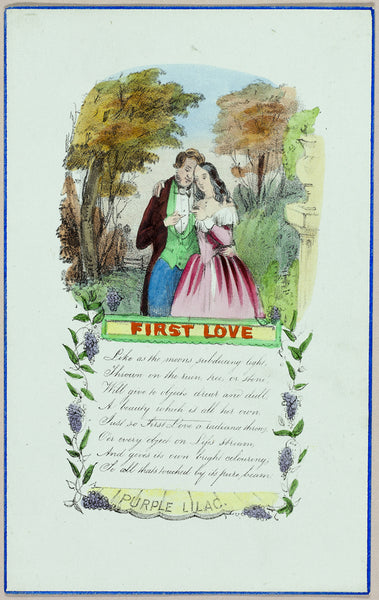 FIRST LOVE
Like as the moons subduing light,
Thrown on the ruin, tree, or stone
Will give to objects drear and dull
A beauty which is all her own
Just so First Love a radiance throws
On every object on Life's stream
And gives its own bright colouring,
To all thats touched by its pure beam
PURPLE LILAC.